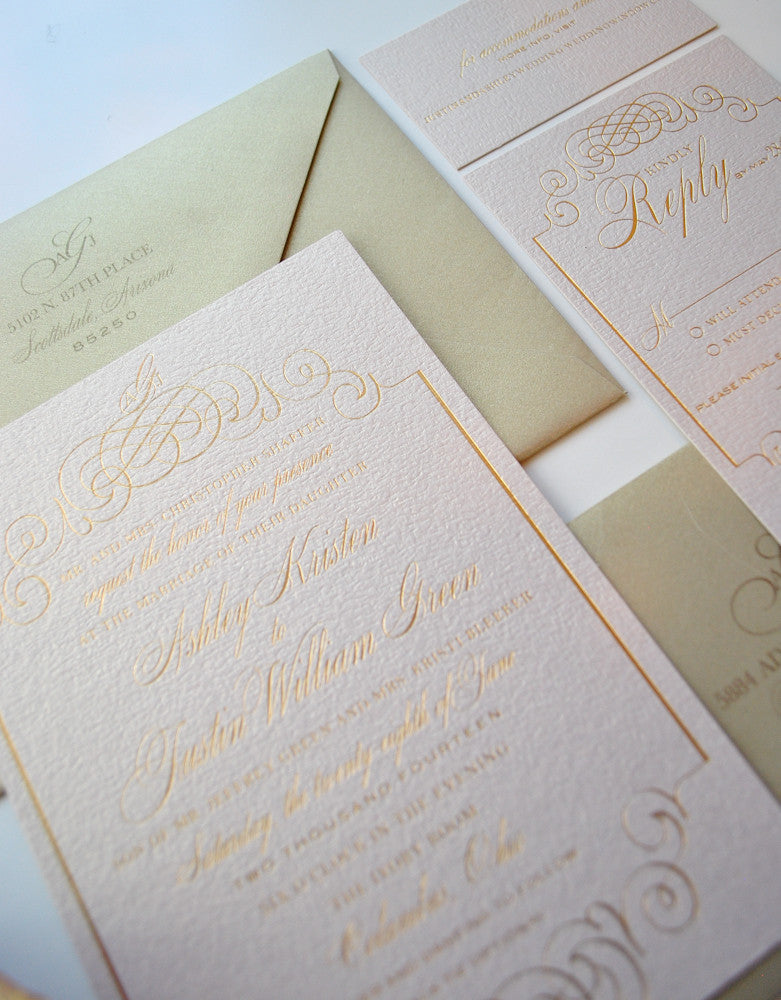 for accommodations and
MORE INFO, VISIT
KINDLY
Reply
BY MAY
M
WILL ATTEND
MUST DECL
PLEASE INITIAL
AGJ
5102 N 87TH PLACE
Scottsdale, Arizona
85250
AGJ
MR. AND MRS. CHRISTOPHER SHAFFER
request the honor of your presence
AT THE MARRIAGE OF THEIR DAUGHTER
Ashley Kristen
to
Justin William Green
SON OF MR. JEFFREY GREEN AND MRS. KRISTI BLEEKER
Saturday, the twenty-eighth of June
TWO THOUSAND FOURTEEN
SIX O'CLOCK IN THE EVENING
THE IVORY ROOM
Columbus, Ohio
TO FOLLOW
5884 AD